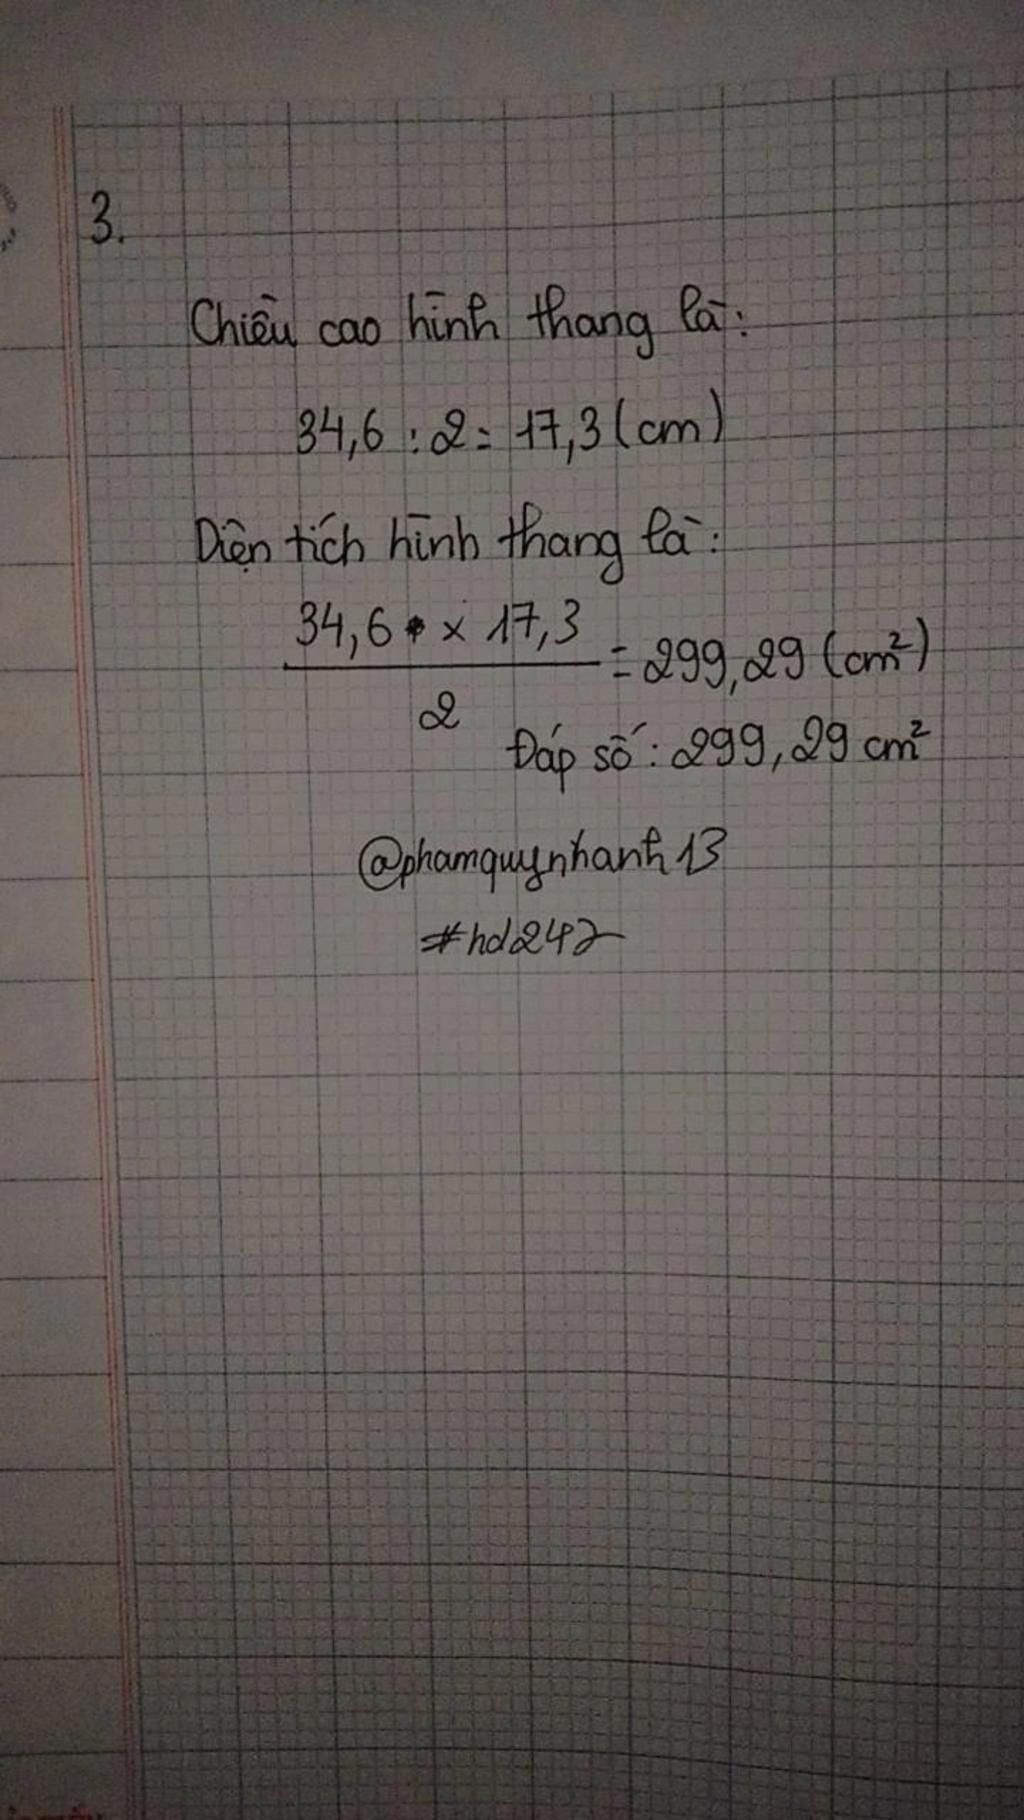 3.
Chiều cao hình thang là:
34,6 : 2 = 17,3 (cm)
Diện tích hình thang là:
34,6 × 17,3
= 299,29 (cm²)
2
Đáp số: 299,29 cm²
@phamquynhanh13
#hd247